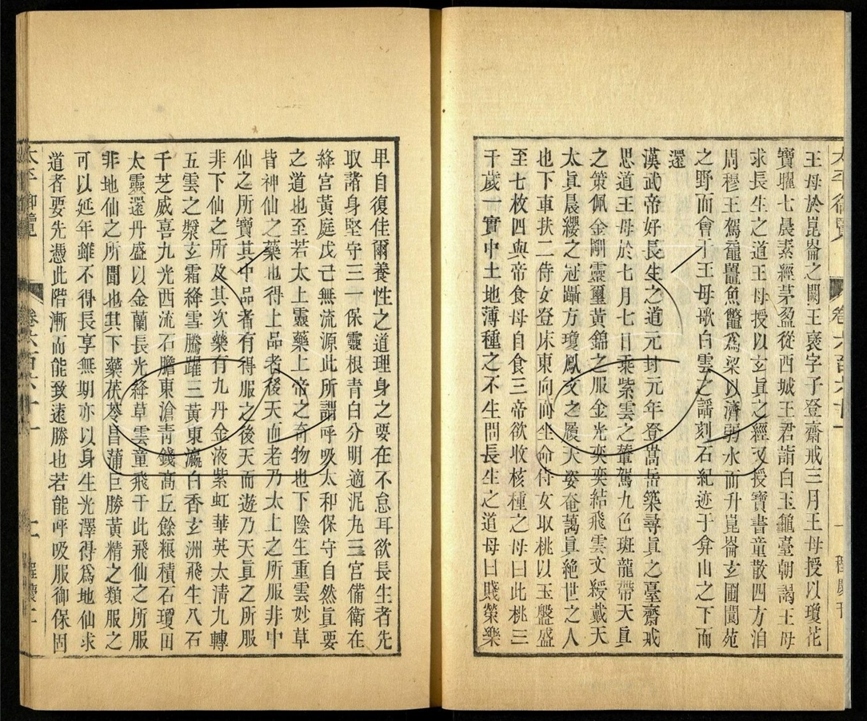 王母於崑崙之闕王襃字子登齋戒三月王母授以瓊花
寶曜七晨素經茅盈從西城王君詣白玉龜臺朝謁王母
求長生之道王母授以玄眞之經又授寶書童散四方洎
周穆王駕黿鼉魚鼈爲梁以濟弱水而升崑崙玄圃閬苑
之野而會于王母歌白雲之謠刻石紀迹于弇山之下而
還
漢武帝好長生之道元封元年登嵩岳築尋眞之臺齋戒
思道王母於七月七日乘紫雲之輦駕九色斑龍帶天眞
之策佩金剛靈璽黃錦之服金光奕奕結飛雲文綬戴天
太眞晨纓之冠躡方瓊鳳文之履天姿奄藹眞絶世之人
也下車扶二侍女登床東向而坐命侍女取桃以玉盤盛
至七枚四與帝食母自食三帝欲收核種之母曰此桃三
千歲一實中土地薄種之不生問長生之道母曰賤榮樂
太平御覽 卷六百六十一 一
甲自復佳爾養性之道理身之要在不怠耳欲長生者先
取諸身堅守三一保靈根青白分明適泥九三宮備衛在
絳宮黃庭戊己無流源此所謂呼吸太和保守自然眞要
之道也至若太上靈藥上帝之奇物也下陰生重雲妙草
皆神仙之藥也得上品者後天而老乃太上之所服非中
仙之所寶其中品者有得服之後天而遊乃天眞之所服
非下仙之所及其次藥有九丹金液紫虹華英太清九轉
五雲之漿玄霜絳雪騰躍三黃東瀛白香玄洲飛生八石
千芝威喜九光西流石膽東滄青錢高丘餘粮積石瓊田
太靈還丹盛以金蘭長光絳草雲童飛干此飛仙之所服
非地仙之所聞也其下藥茯苓昌蒲巨勝黃精之類服之
可以延年雖不得長享無期亦以身生光澤得爲地仙求
道者要先憑此階漸而能致遠勝也若能呼吸服御保固
太平御覽 卷六百六十一